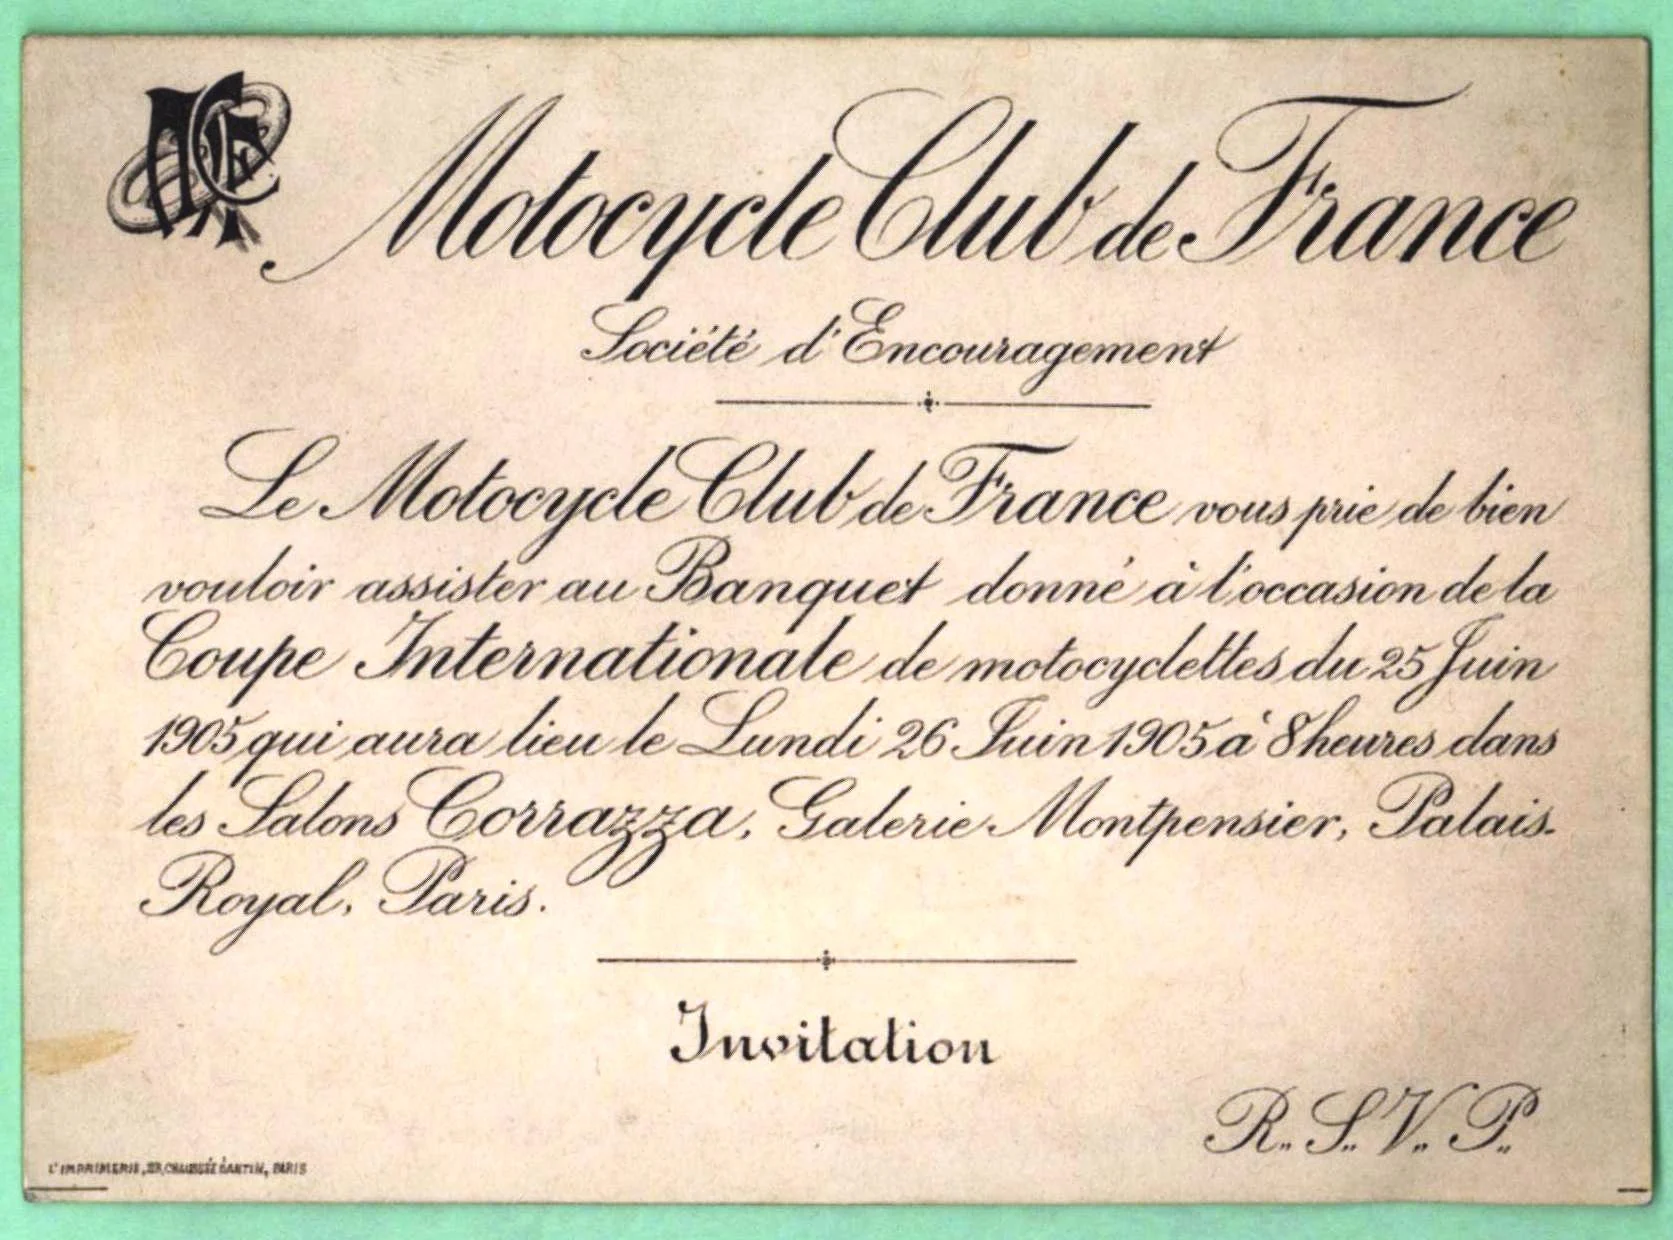 MCF
Motocycle Club de France
Société d'Encouragement
Le Motocycle Club de France vous prie de bien
vouloir assister au Banquet donné à l'occasion de la
Coupe Internationale de motocyclettes du 25 Juin
1905 qui aura lieu le Lundi 26 Juin 1905 à 8 heures dans
les Salons Corrazza, Galerie Montpensier, Palais-
Royal, Paris.
Invitation
R.. S.. V.. P..
L'IMPRIMERIE, CHAUSSÉE D'ANTIN, PARIS